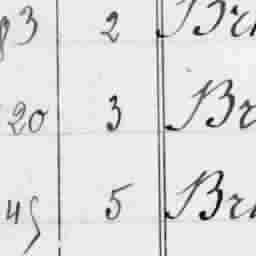 93 2 Br
20 3 Br
45 5 Br